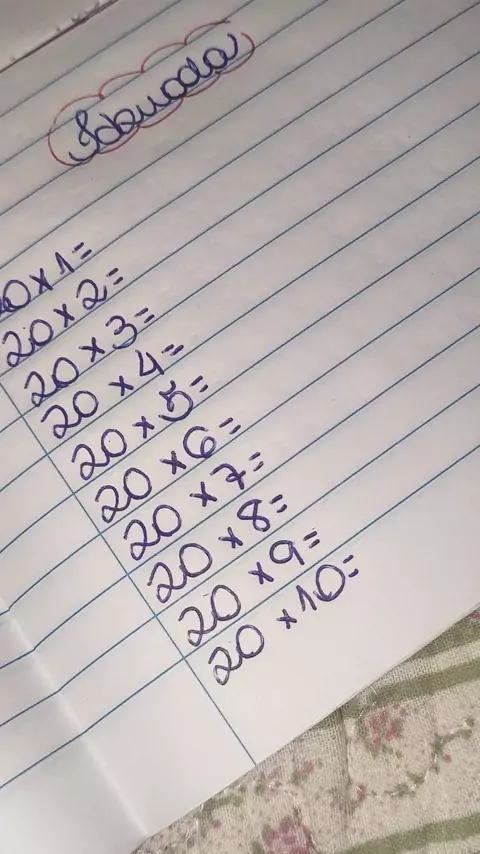 Tabuada
20×1=
20×2=
20×3=
20×4=
20×5=
20×6=
20×7=
20×8=
20×9=
20×10=